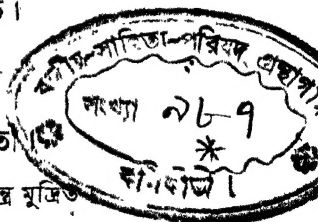 বঙ্গীয়-সাহিত্য-পরিষদ্ গ্রন্থাগার
সংখ্যা ৯৮৭
মুদ্রিত